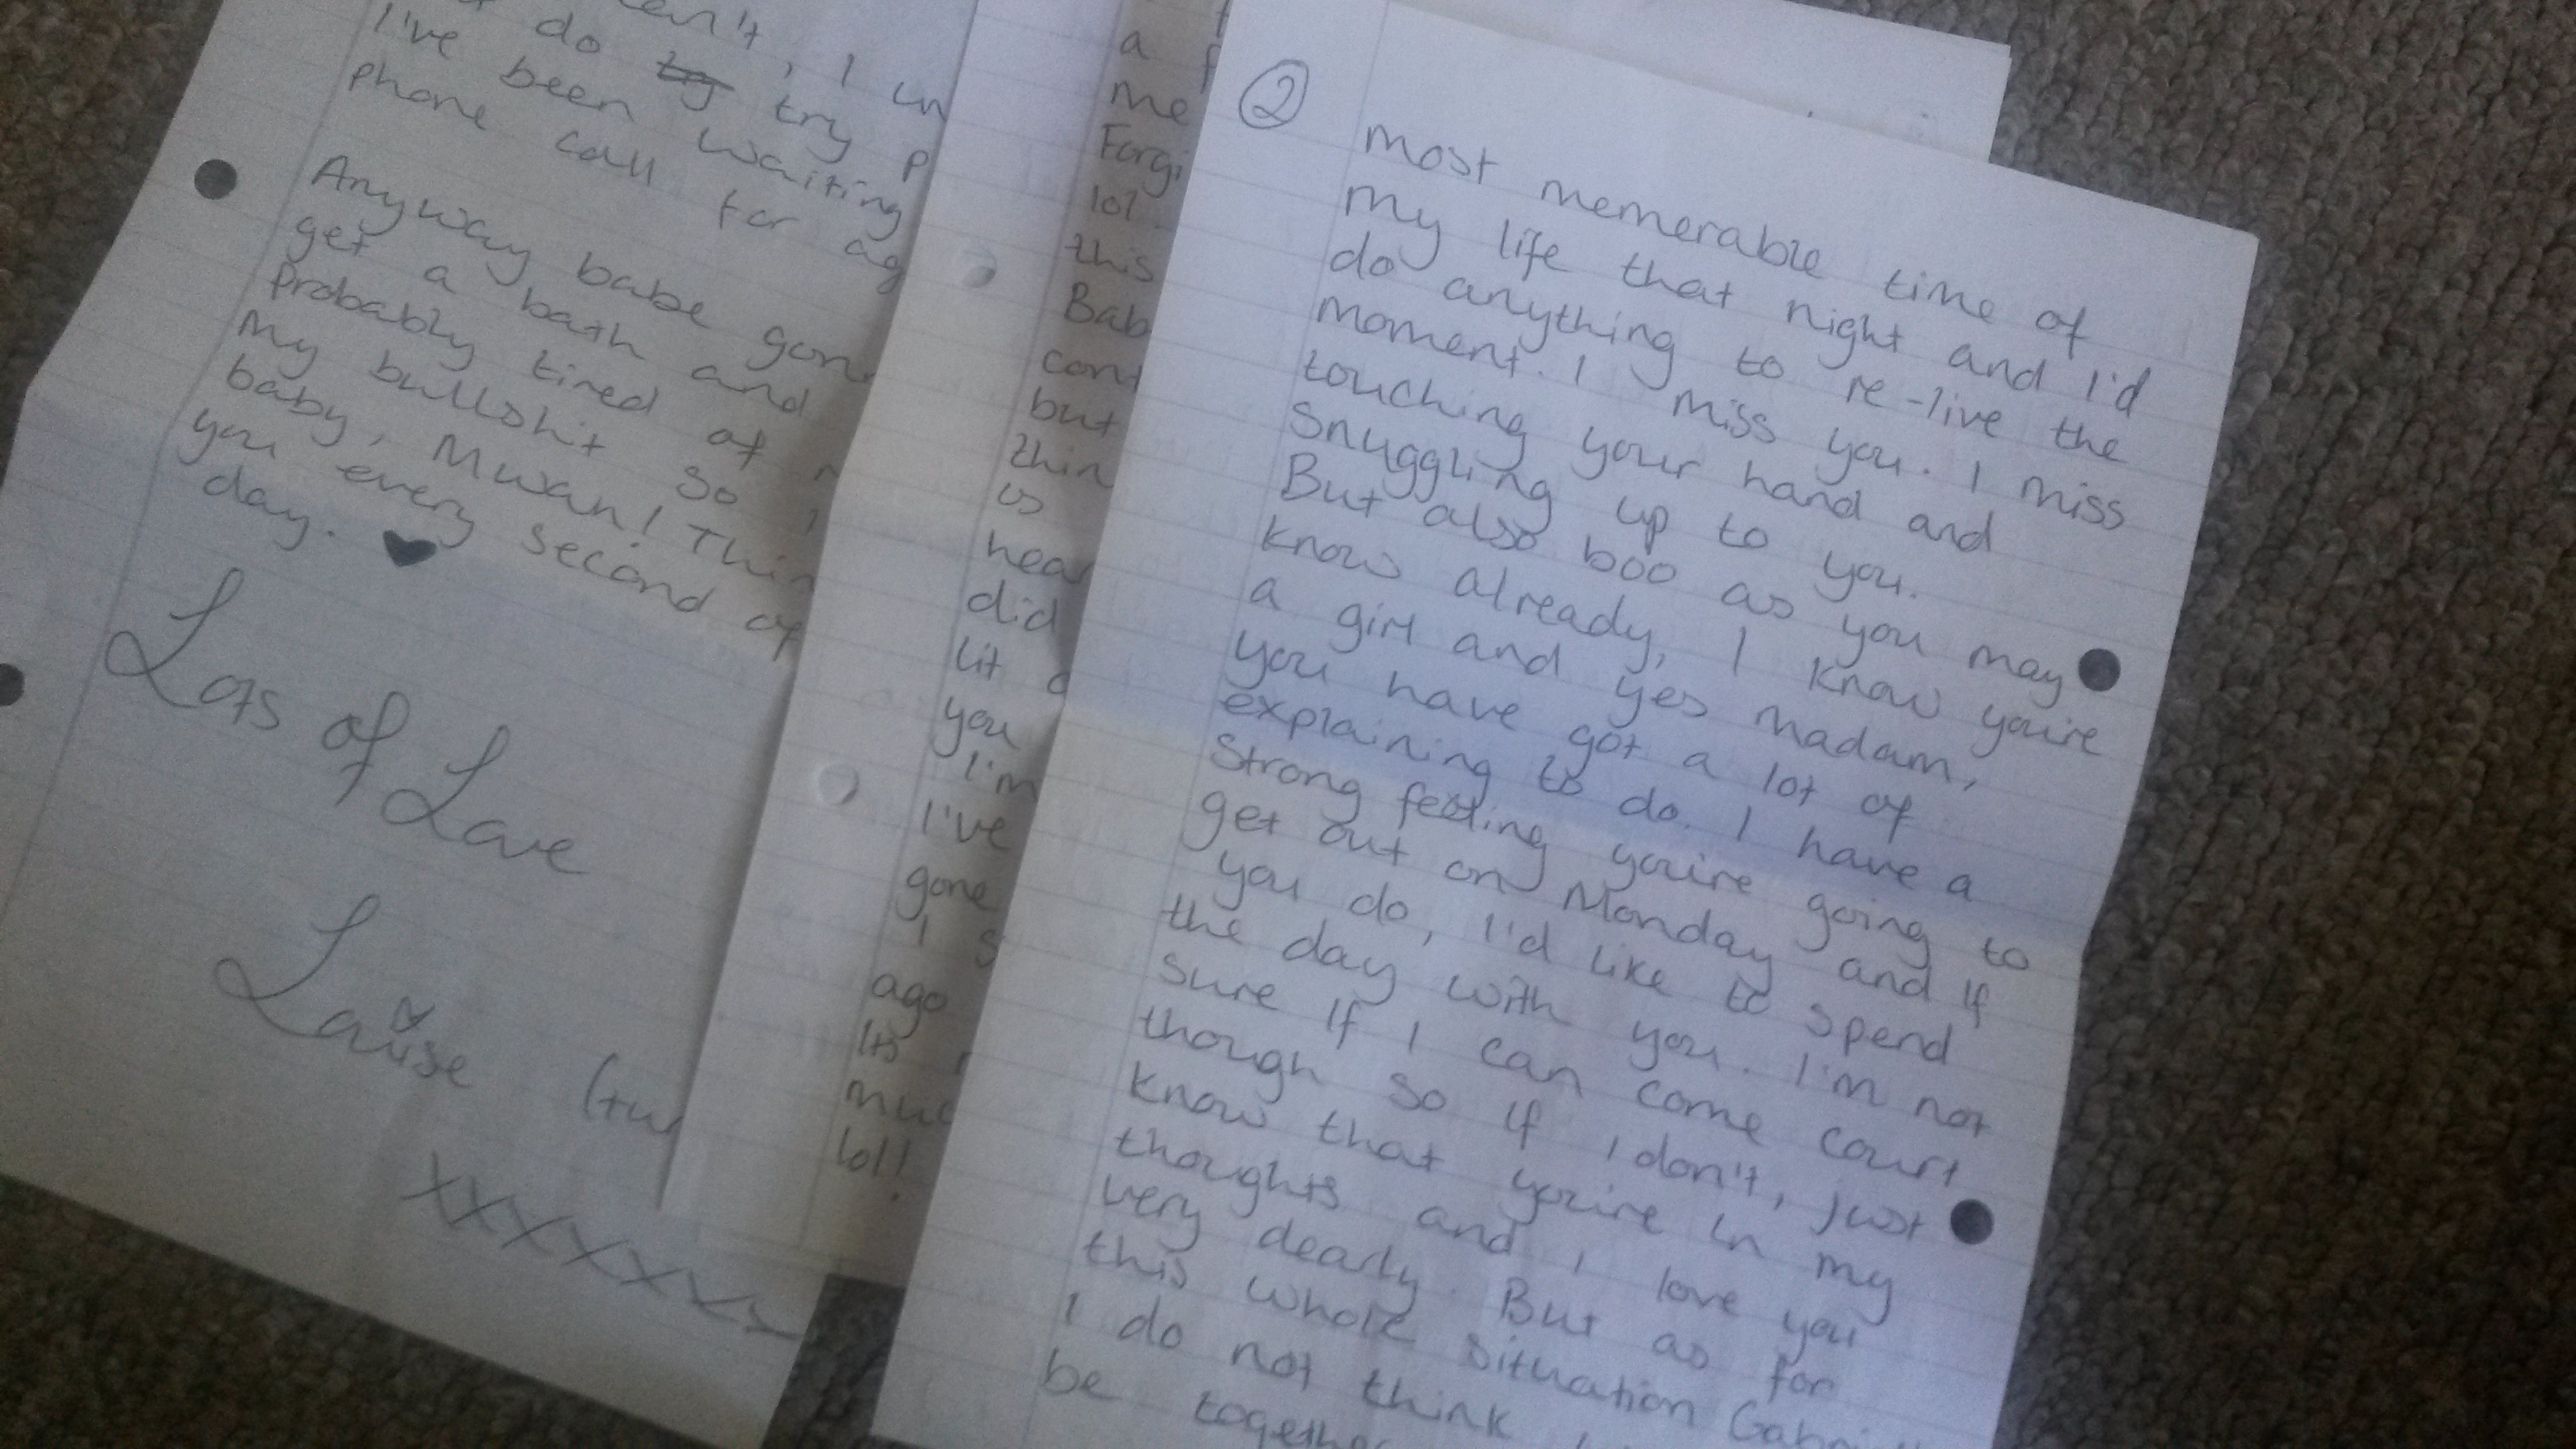 , I un
do try p
I've been waiting
phone call for ag
Anyway babe gon
get a bath and
probably tired of
my bullshit so
baby, Mwah! Thin
you every second of
day. ♥
Lots of Love
Louise (tw
xxxxxxx
a f
me
Forgi
lol
this
Bab
cont
but
thin
us
hear
did
lit
you
I'm
I've
gone
I s
ago
Its
muc
lol!
2
most memerable time of
my life that night and I'd
do anything to re-live the
moment. I miss you. I miss
touching your hand and
snuggling up to you.
But also boo as you may
know already, I know you're
a girl and yes madam,
you have got a lot of
explaining to do. I have a
strong feeling you're going to
get out on Monday and if
you do, I'd like to spend
the day with you. I'm not
sure if I can come court
though so if I don't, just
know that you're in my
thoughts and I love you
very dearly. But as for
this whole situation Gabri
I do not think
be together